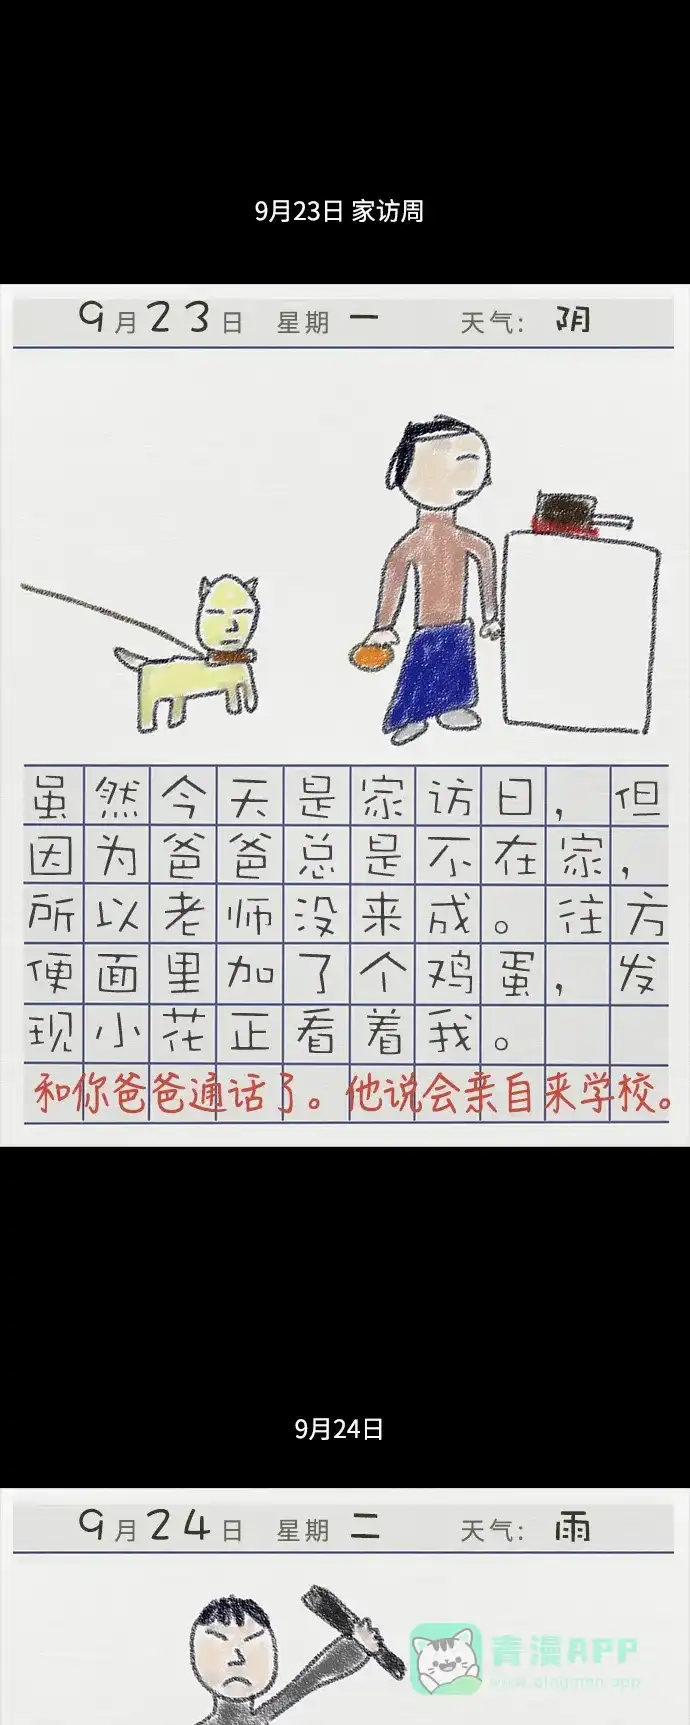 9月23日 家访周
9月23日 星期一 天气: 阴
虽然今天是家访日，但
因为爸爸总是不在家，
所以老师没来成。往方
便面里加了个鸡蛋，发
现小花正看着我。
和你爸爸通话了。他说会亲自来学校。
9月24日
9月24日 星期二 天气: 雨
青漫APP
www.qingman.app